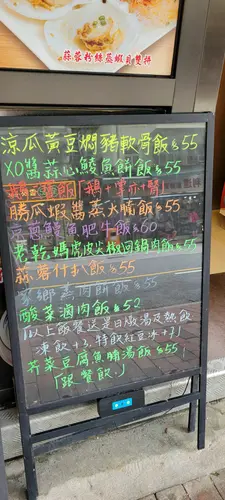 蒜蓉粉絲蒸蝦貝雙拼
涼瓜黃豆燜豬軟骨飯$55
XO醬菜心鯪魚餅飯$55
勝瓜蝦醬蒸水腩飯$55
豆豉鯪魚肥牛飯$60
老乾媽虎皮尖椒回鍋肉飯$55
蒜蓉什扒飯$55
家鄉蒸肉餅飯$55
酸菜滷肉飯$52
「以上飯餐送是日燉湯及熱飲
凍飲+3,特飲紅豆冰+7」
芥菜豆腐魚腩湯飯$55
「跟餐飲」